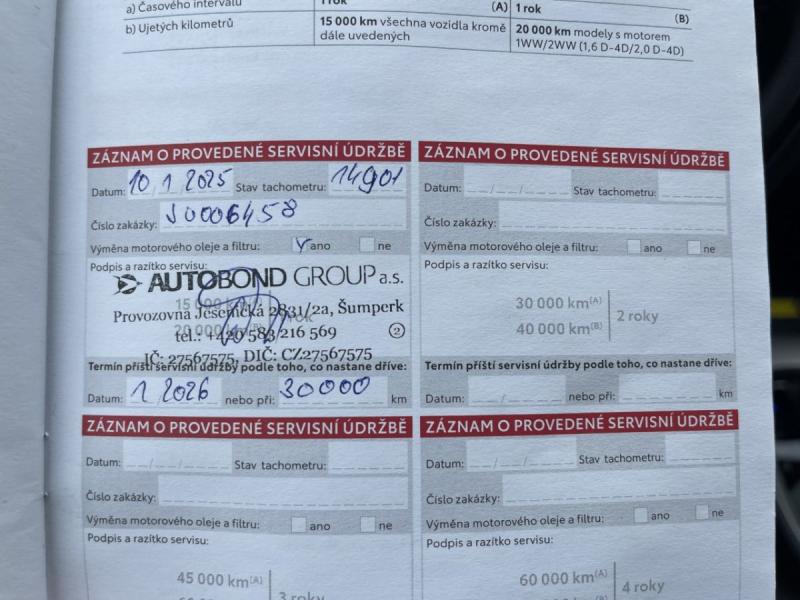 a) Časového intervalu
1 rok
(A)
1 rok
(B)
b) Ujetých kilometrů
15 000 km všechna vozidla kromě
dále uvedených
20 000 km modely s motorem
1WW/2WW (1,6 D-4D/2,0 D-4D)
ZÁZNAM O PROVEDENÉ SERVISNÍ ÚDRŽBĚ
Datum: 10 1 2025 Stav tachometru: 14901
Číslo zakázky: J0006458
Výměna motorového oleje a filtru: v ano ne
Podpis a razítko servisu:
AUTOBOND GROUP a.s.
15 000 km(A)
Provozovna Jesenická 2831/2a, Šumperk
1 rok
20 000 km(B)
tel.: +420 583 216 569 2
IČ: 27567575, DIČ: CZ27567575
Termín příští servisní údržby podle toho, co nastane dříve:
Datum: 1 2026 nebo při: 30000 km
ZÁZNAM O PROVEDENÉ SERVISNÍ ÚDRŽBĚ
Datum: _ _/_ _/_ _ _ _ Stav tachometru:
Číslo zakázky:
Výměna motorového oleje a filtru: ano ne
Podpis a razítko servisu:
30 000 km(A)
2 roky
40 000 km(B)
Termín příští servisní údržby podle toho, co nastane dříve:
Datum: _ _/_ _ _ _ nebo při: km
ZÁZNAM O PROVEDENÉ SERVISNÍ ÚDRŽBĚ
Datum: _ _/_ _/_ _ _ _ Stav tachometru:
Číslo zakázky:
Výměna motorového oleje a filtru: ano ne
Podpis a razítko servisu:
45 000 km(A)
3 roky
ZÁZNAM O PROVEDENÉ SERVISNÍ ÚDRŽBĚ
Datum: _ _/_ _/_ _ _ _ Stav tachometru:
Číslo zakázky:
Výměna motorového oleje a filtru: ano ne
Podpis a razítko servisu:
60 000 km(A)
4 roky